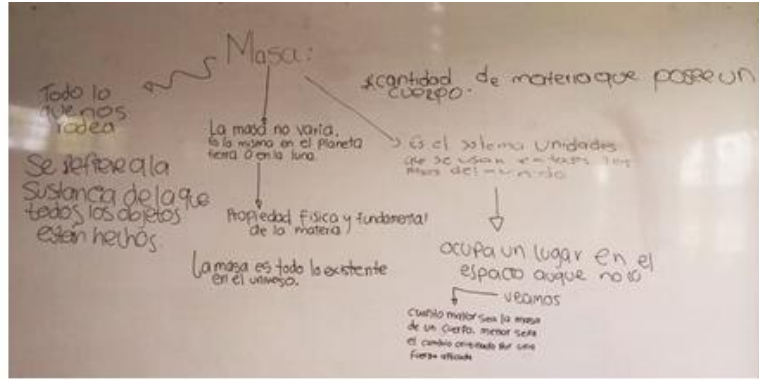 Masa:
Todo lo
que nos
rodea
Se refiere a la
Sustancia de la que
todos los objetos
están hechos
La masa no varia,
es la misma en el planeta
tierra o en la luna.
Propiedad física y fundamental
de la materia
La masa es todo lo existente
en el universo.
*cantidad de materia que posee un
cuerpo.
Es el sistema Unidades
que se usan en todos los
del mundo
ocupa un lugar en el
espacio auque no lo
veamos
cuanto mayor sea la masa
de un cuerpo, menor será
el cambio originado por una
fuerza aplicada